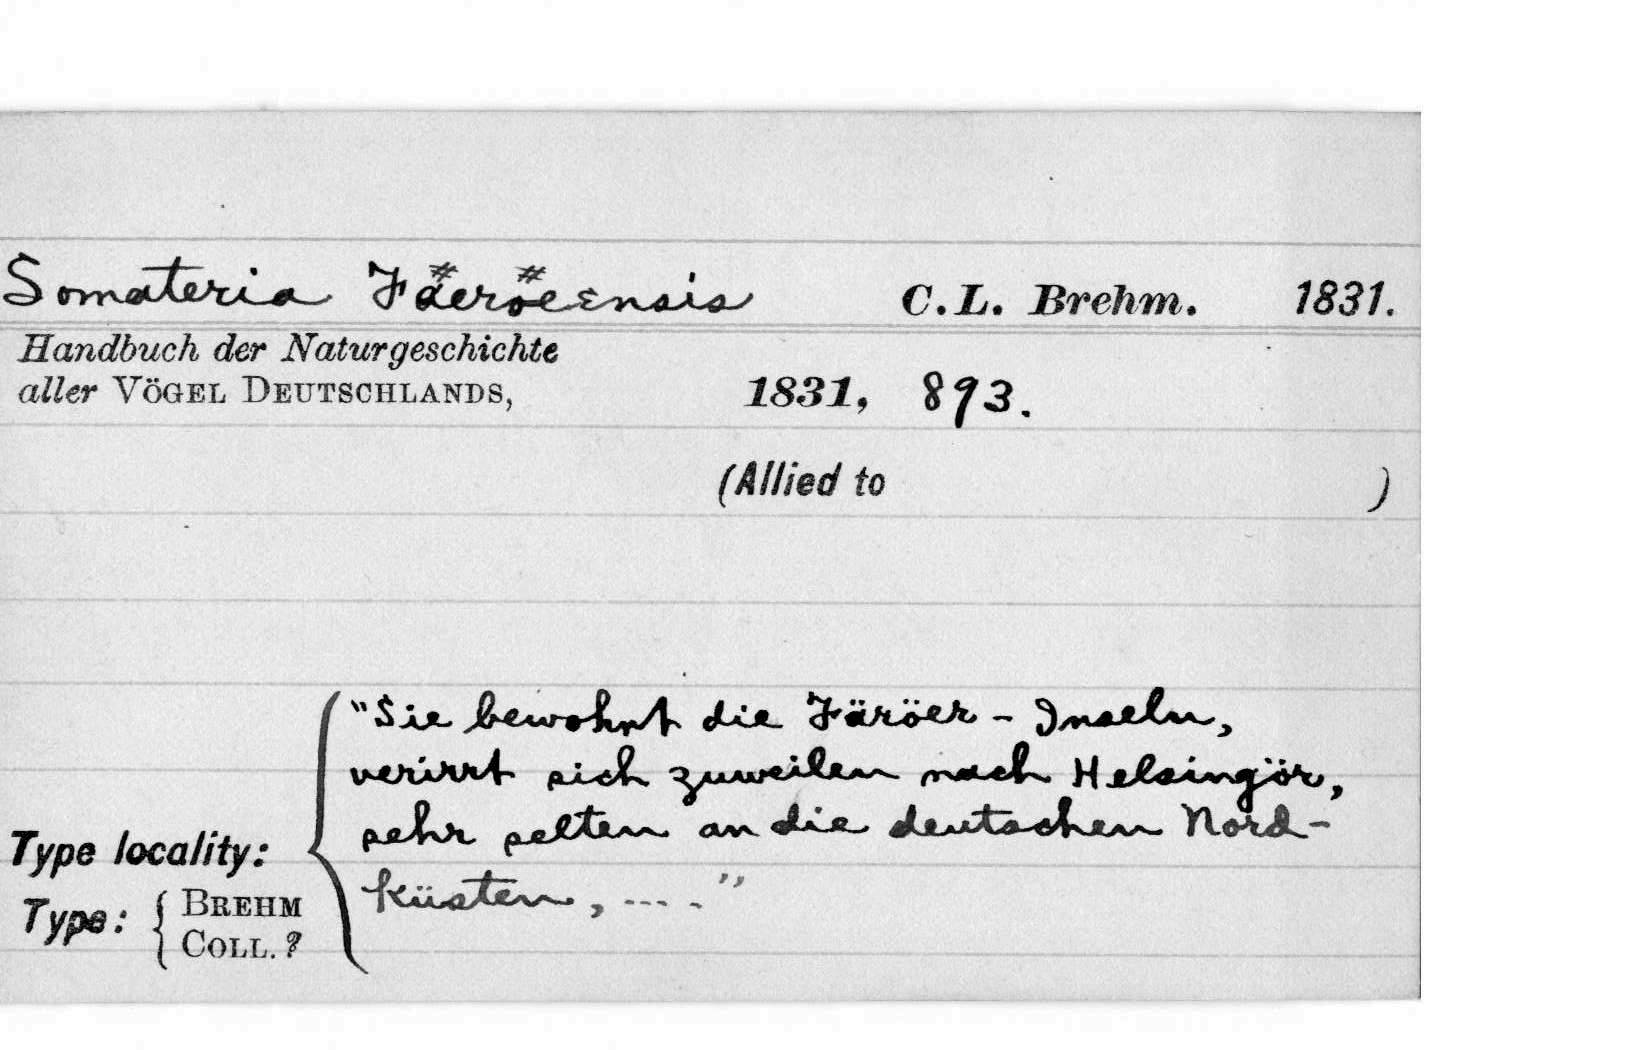 Somateria Fäeröeensis C.L. Brehm. 1831.
Handbuch der Naturgeschichte
aller VÖGEL DEUTSCHLANDS, 1831, 893.
(Allied to )
"Sie bewohnt die Färöer - Inseln,
verirrt sich zuweilen nach Helsingör,
sehr selten an die deutschen Nord-
küsten, .... "
Type locality:
Type: { BREHM
COLL. ?